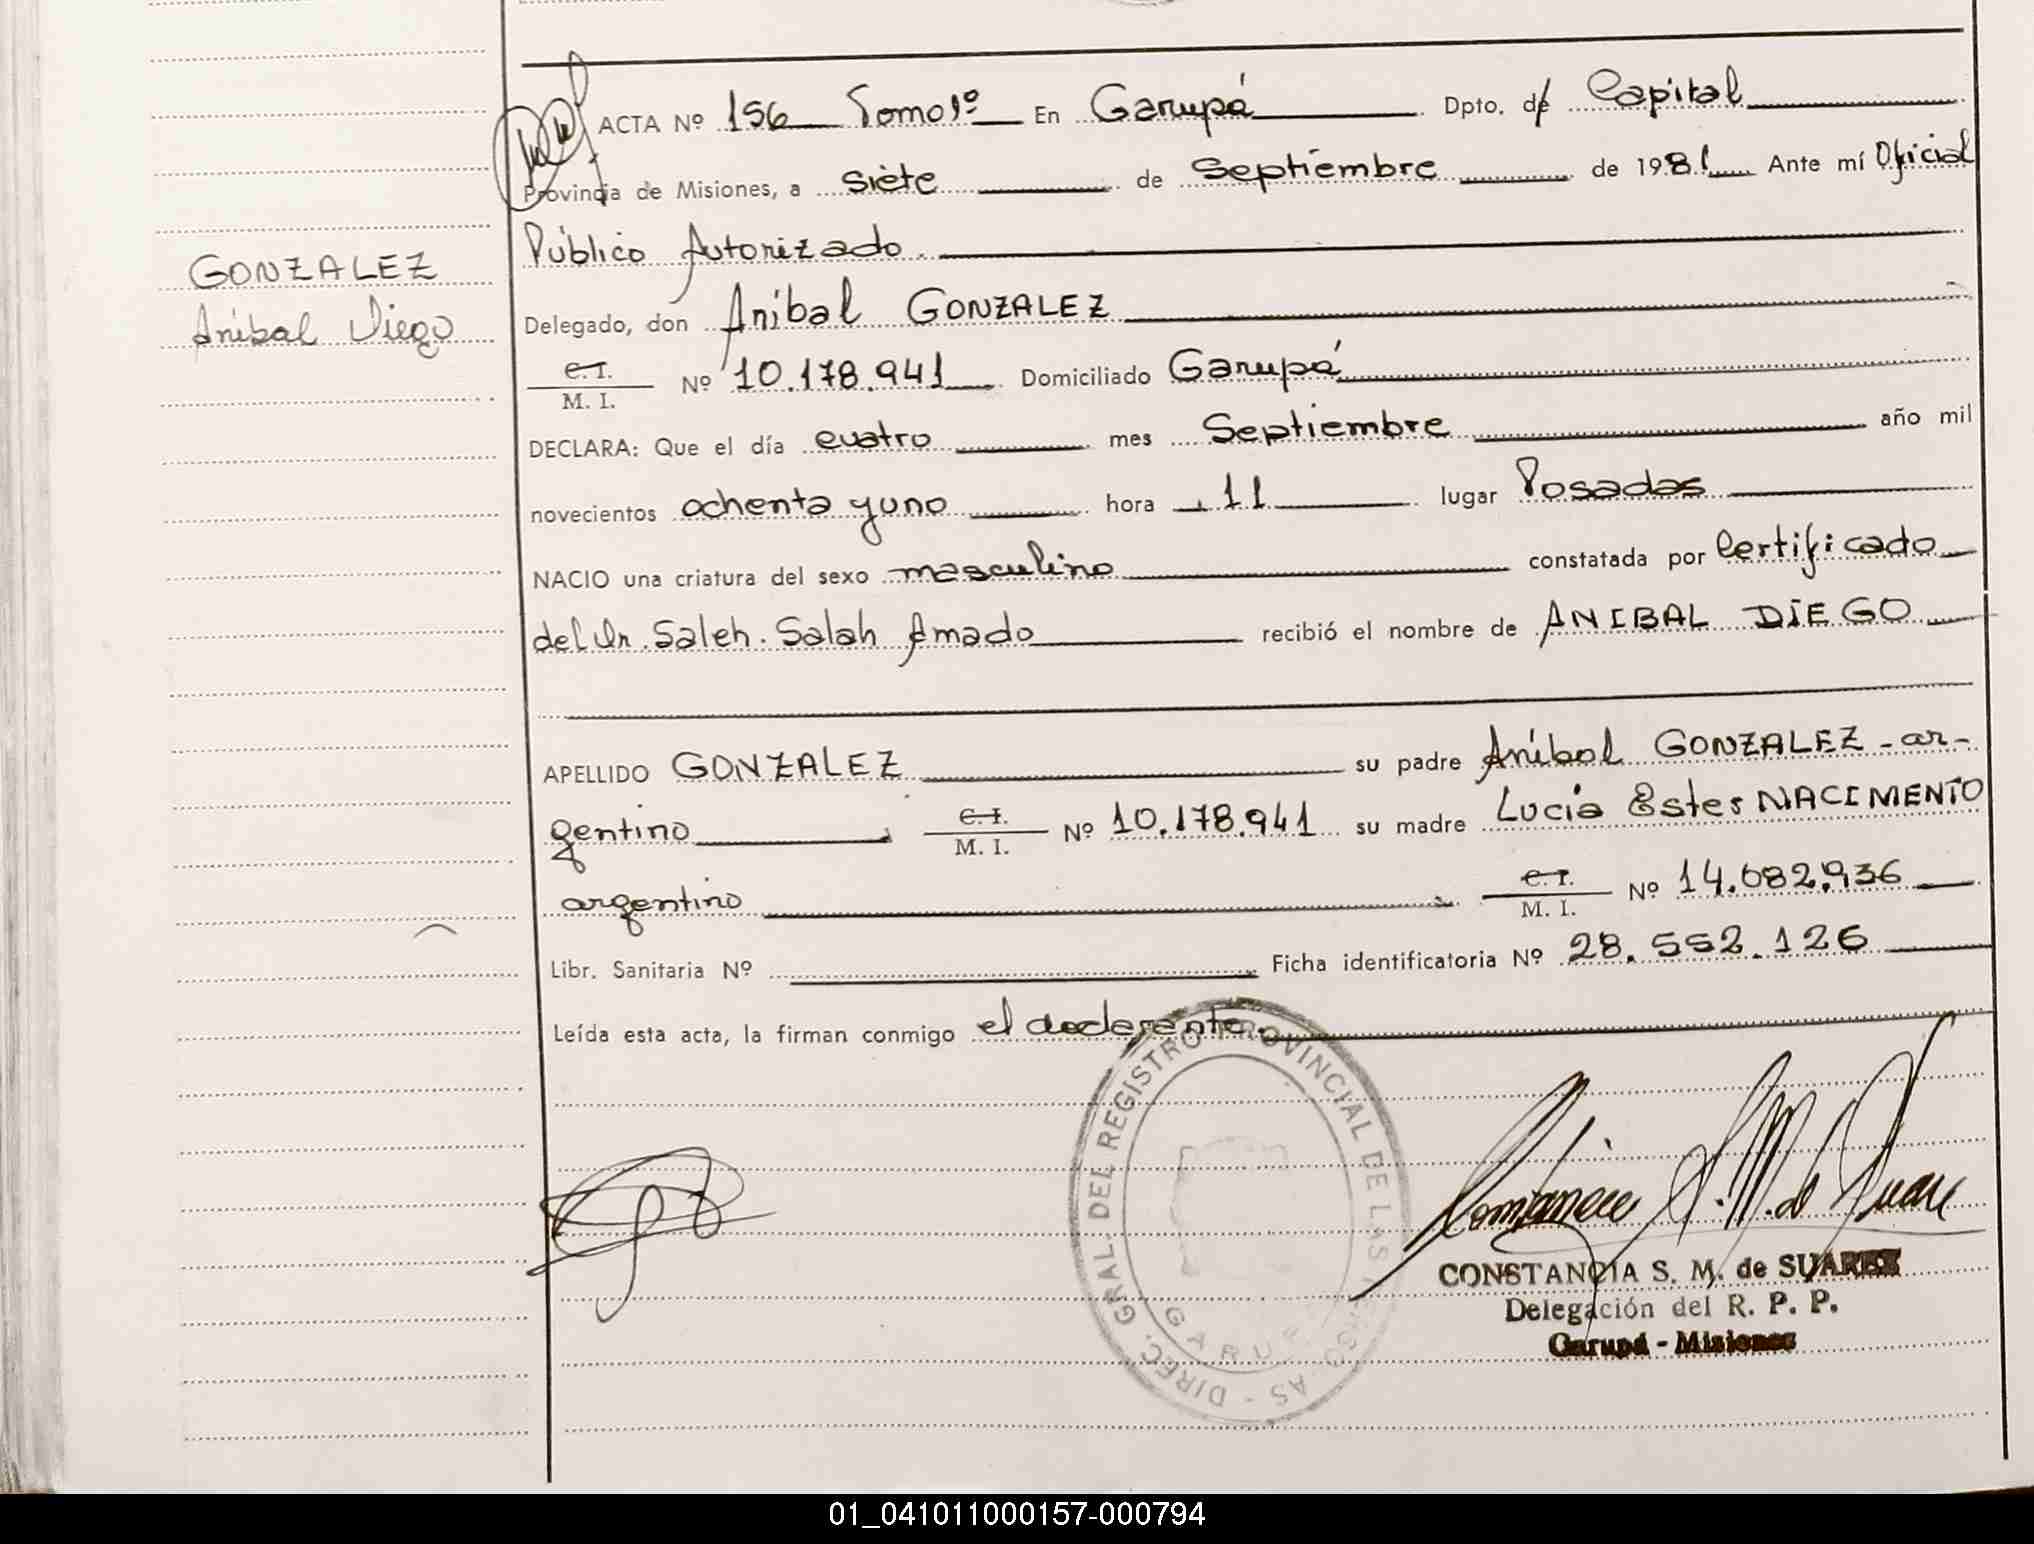 ACTA Nº 156 Tomo 1º En Garupá Dpto. de Capital
Provincia de Misiones, a siete de Septiembre de 1981 Ante mí Oficial
Público Autorizado.
GONZALEZ
Aníbal Diego
Delegado, don Aníbal GONZALEZ
C. I.
M. I.
Nº 10.178.941 Domiciliado Garupá
DECLARA: Que el día cuatro mes Septiembre año mil
novecientos ochenta y uno hora 11 lugar Posadas
NACIO una criatura del sexo masculino constatada por Certificado
del Dr. Saleh. Salah Amado recibió el nombre de ANIBAL DIEGO
APELLIDO GONZALEZ su padre Aníbal GONZALEZ - ar-
gentino C. I. Nº 10.178.941 su madre Lucia Ester NACIMENTO
M. I.
argentino C. I. Nº 14.682.936
M. I.
Libr. Sanitaria Nº Ficha identificatoria Nº 28.552.126
Leída esta acta, la firman conmigo el declarante.
DIREC. GRAL. DEL REGISTRO PROVINCIAL DE LAS PERSONAS
GARUPA
CONSTANCIA S. M. de SUAREZ
Delegación del R. P. P.
Garupá - Misiones
01_041011000157-000794